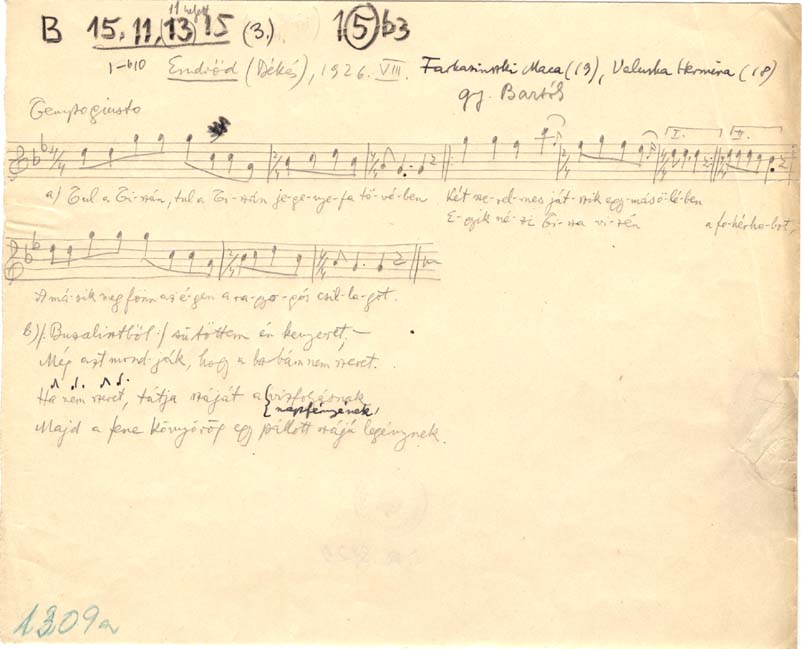 11 helyett
B 15, 11, (13) 15 (3.) 1 (5) b3
1–b10 Endrőd (Békés), 1926. VIII. Farkasinszki Maca (19), Valuska Hermina (18)
gy. Bartók
Tempo giusto
a) Túl a Ti-szán, túl a Ti-szán je-ge-nye-fa tö-vé-ben Két sze-rel-mes ját-szik egy-más ö-lé-ben
E-gyik né-zi Ti-sza vi-zén a fo-kér-ha-bot,
A má-sik meg fönn az é-gen a ra-gyo-gós csil-la-got.
b) /: Búzalisztből :/ sütöttem én kenyeret,–
Még azt mond-ják, hogy a babám nem szeret.
Ha nem szeret, tátja száját a { vízfolyásnak
{ napfényének,
Majd a fene könyörög egy pállott szájú legénynek.
1309a